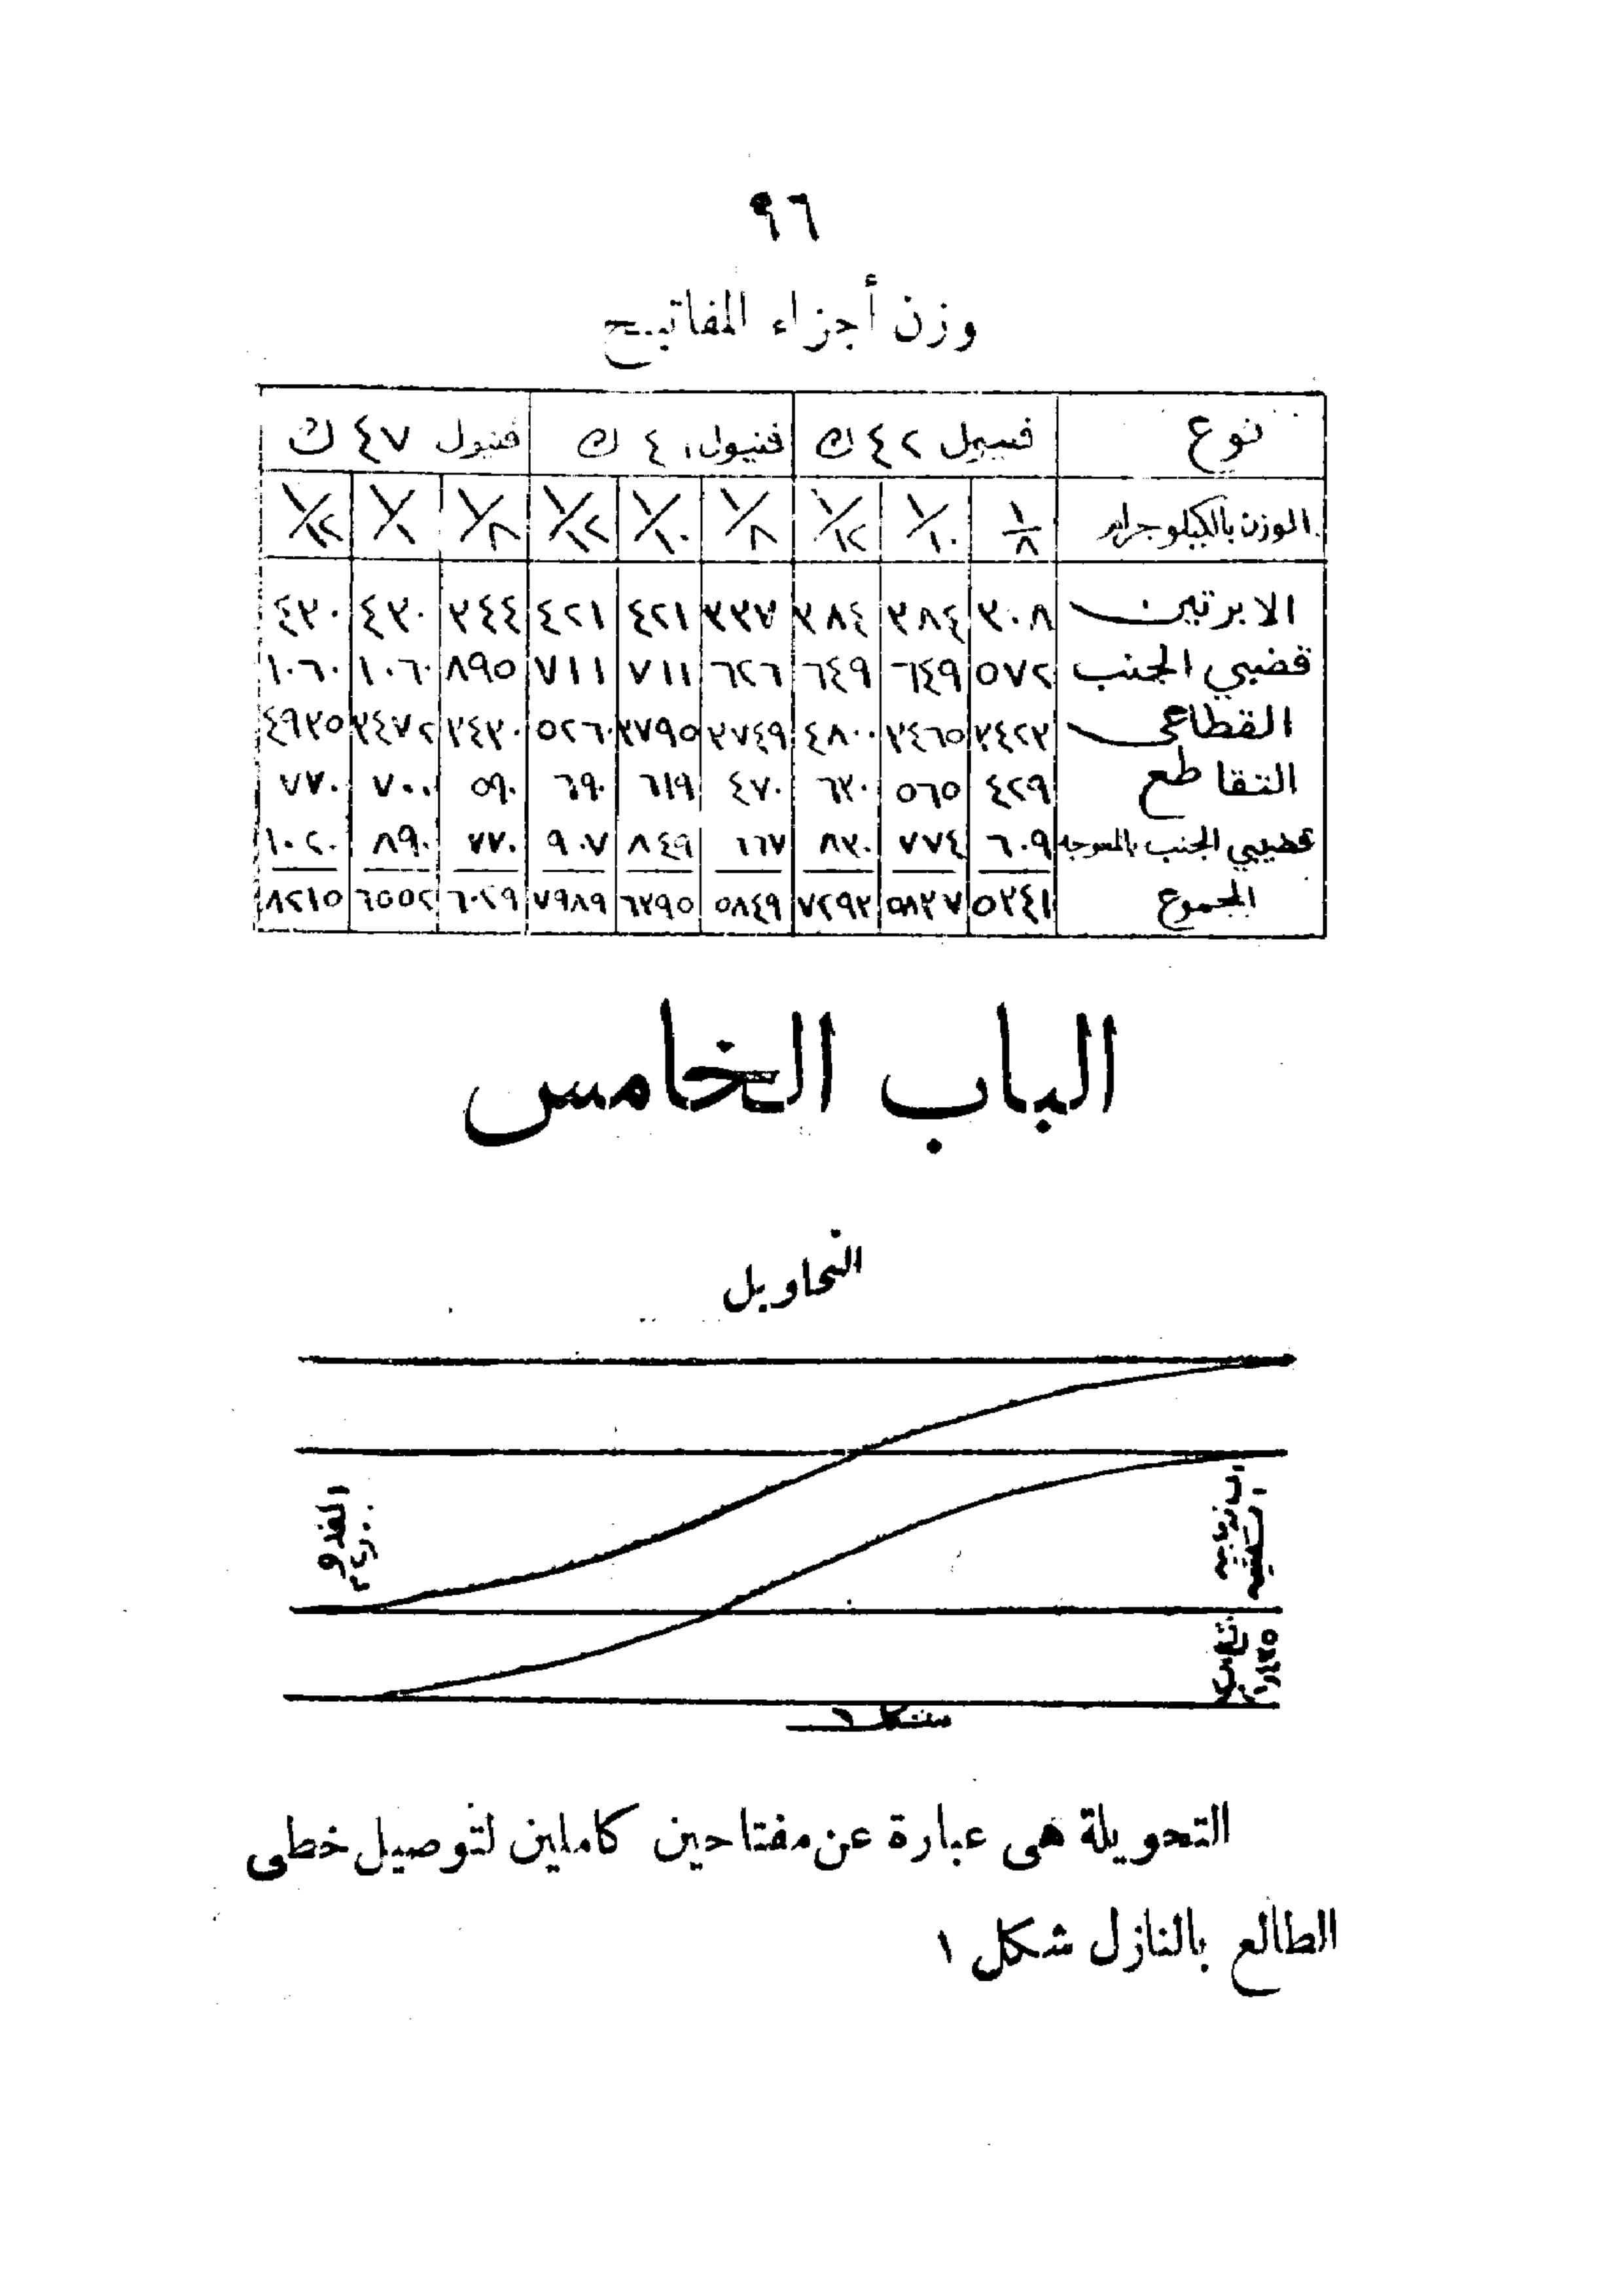 ٩٦
وزن أجزاء المفاتيح
نوع فنيول ٤٢ ك فنيول ٤ ك فنيول ٤٧ ك
الوزن بالكيلوجرام ١/٨ ١/١٠ ١/١٢ ١/٨ ١/١٠ ١/١٢ ١/٨ ١/١٠ ١/١٢
الابرتين ٣٠٨ ٣٨٤ ٣٨٤ ٣٣٧ ٤٢١ ٤٢١ ٣٤٤ ٤٣٠ ٤٣٠
قضيبي الجنب ٥٧٢ ٦٤٩ ٦٤٩ ٦٢٦ ٧١١ ٧١١ ٨٩٥ ١٠٦٠ ١٠٦٠
القطاعى ٣٤٢٣ ٣٤٦٥ ٤٨٠٠ ٣٧٤٩ ٣٧٩٥ ٥٢٦٠ ٣٤٣٠ ٣٤٧٢ ٤٩٣٥
التقاطع ٤٢٩ ٥٦٥ ٦٣٠ ٤٧٠ ٦١٩ ٦٩٠ ٥٩٠ ٧٠٠ ٧٧٠
قضيبي الجنب بالمعوجه ٦٠٩ ٧٧٤ ٨٣٠ ٦٦٧ ٨٤٩ ٩٠٧ ٧٧٠ ٨٩٠ ١٠٢٠
المجموع ٥٣٤١ ٥٨٣٧ ٧٢٩٣ ٥٨٤٩ ٦٣٩٥ ٧٩٨٩ ٦٠٢٩ ٦٥٥٢ ٨٢١٥
الباب الخامس
التحاويل
شكل ٦
التحويلة هى عبارة عن مفتاحين كاملين لتوصيل خطى
الطالع بالنازل شكل ١